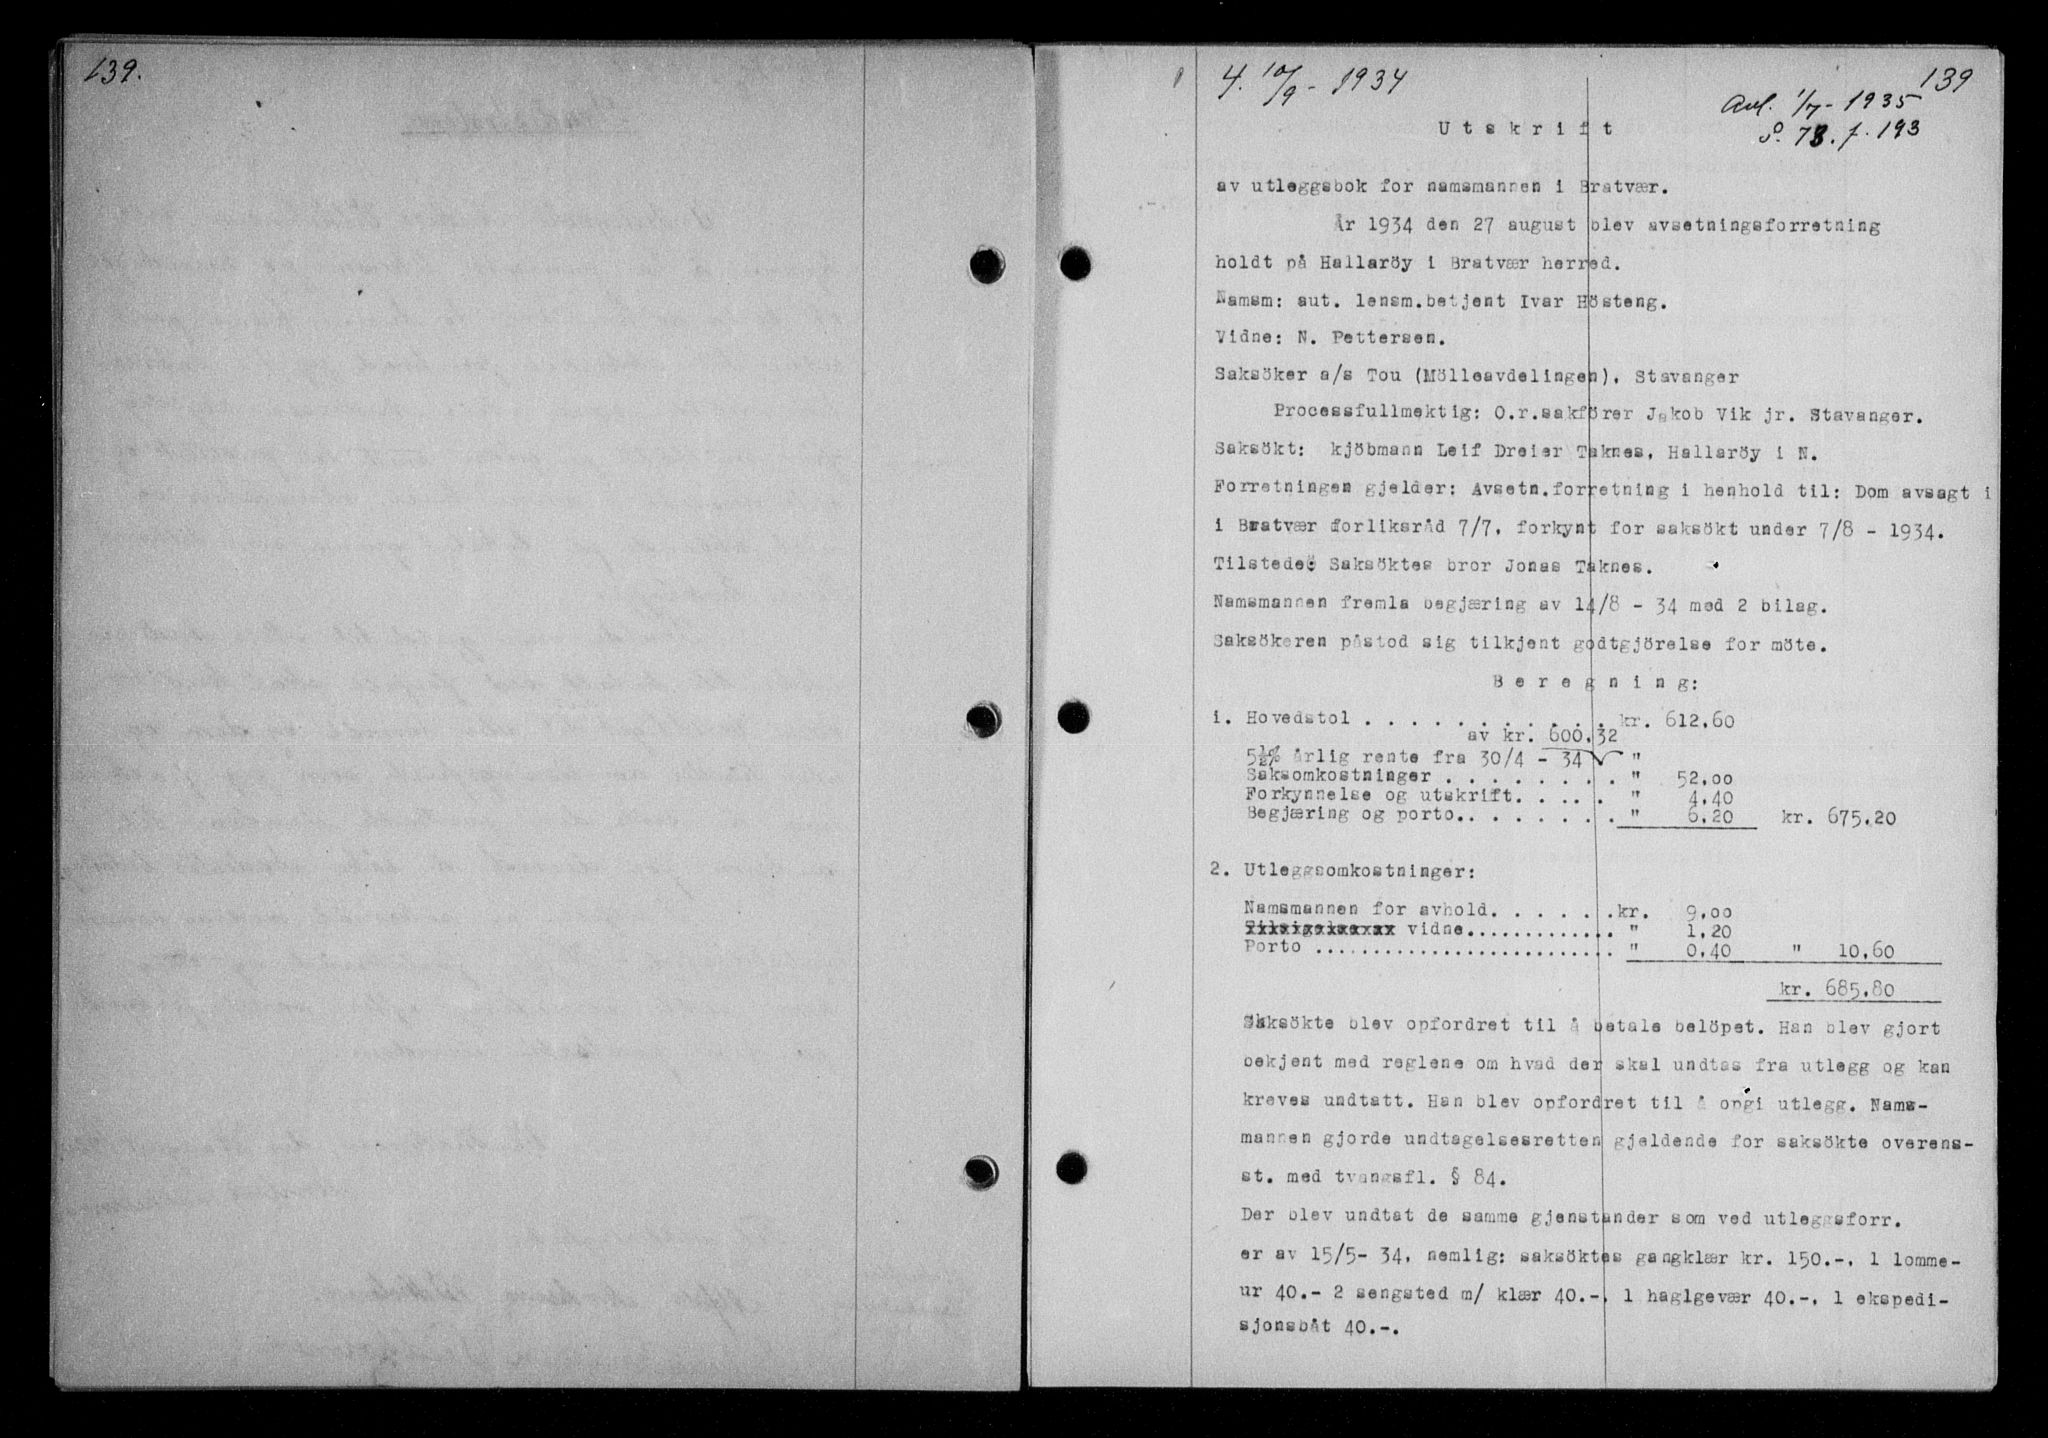 139.
4. 10/9 - 1934
139
Avl. 1/7 - 1935
73. f. 193
Utskrift
av utleggsbok for namsmannen i Bratvær.
År 1934 den 27 august blev avsetningsforretning
holdt på Hallaröy i Bratvær herred.
Namsm: aut. lensm.betjent Ivar Hösteng.
Vidne: N. Pettersen.
Saksöker a/s Tou (Mölleavdelingen), Stavanger
Processfullmektig: O.r.sakförer Jakob Vik jr. Stavanger.
Saksökt: kjöbmann Leif Dreier Taknes, Hallaröy i N.
Forretningen gjelder: Avsetn.forretning i henhold til: Dom avsagt i
i Bratvær forliksråd 7/7, forkynt for saksökt under 7/8 - 1934.
Tilstede: Saksöktes bror Jonas Taknes.
Namsmannen fremla begjæring av 14/8 - 34 med 2 bilag.
Saksökeren påstod sig tilkjent godtgjörelse for möte.
Beregning:
1. Hovedstol . . . . . . . . . . . . kr. 612,60
av kr. 600,32
5½% årlig rente fra 30/4 - 34 "
Saksomkostninger . . . . . . . . " 52,00
Forkynnelse og utskrift. . . . . . " 4,40
Begjæring og porto. . . . . . . . " 6,20 kr. 675,20
2. Utleggsomkostninger:
Namsmannen for avhold. . . . . . .kr. 9,00
vidne............. " 1,20
Porto .......................... " 0,40 " 10,60
kr. 685,80
Saksökte blev opfordret til å betale belöpet. Han blev gjort
bekjent med reglene om hvad der skal undtas fra utlegg og kan
kreves undtatt. Han blev opfordret til å opgi utlegg. Nams-
mannen gjorde undtagelsesretten gjeldende for saksökte overens-
st. med tvangsfl. § 84.
Der blev undtat de samme gjenstander som ved utleggsforr.
er av 15/5- 34, nemlig: saksöktes gangklær kr. 150.-, 1 lomme-
ur 40.- 2 sengsted m/ klær 40.-, 1 haglgevær 40.-, 1 ekspedi-
sjonsbåt 40.-.